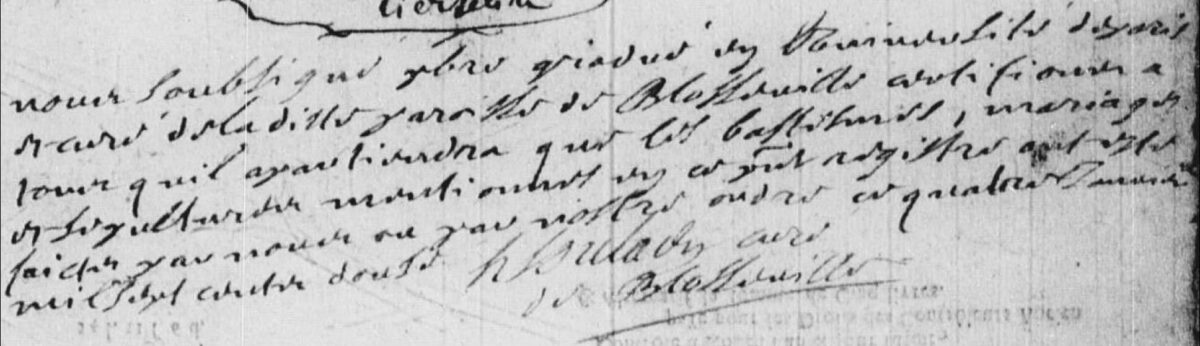 nous soubsigné pbre gradué en l'université de paris
et curé de la ditte paroisse de Blosseville certifions a
tous quil apartiendra que les baptesmes, mariages
et sepultures mentionnes en ce pnt registre ont esté
faictes par nous ou par nostre ordre ce quatre Janvier
mil sept cents douse curé
de Blosseville